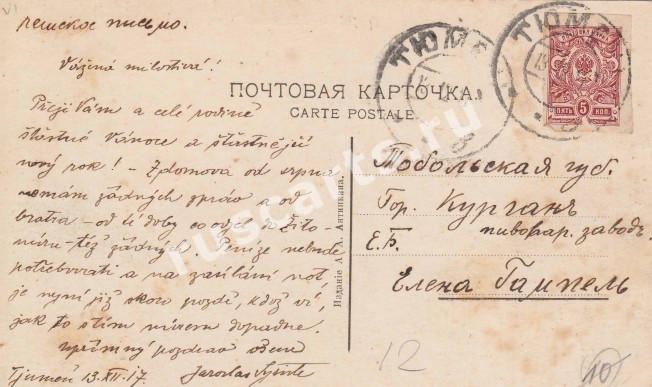 чешское письмо.
Vážená milostivá!
Přeji Vám a celé rodině
šťastné Vánoce a šťastnější
nový rok! - Z domova od srpna
nemám žádných zpráv a od
bratra - od té doby co odjel do Žito-
míru - též žádných. Peníze nebude
potřebovati a na zasílání not
je nyní již skoro pozdě, kdož ví,
jak to s tím mírem dopadne.
upřímný pozdrav všem
Tjumeň 13.XII.17. Jaroslav
ПОЧТОВАЯ КАРТОЧКА.
CARTE POSTALE.
ТЮМЕ
ТЮМ
5
ПЯТЬ КОП
Тобольская губ.
Гор. Курганъ
пивовар. заводъ
Е.Б.
Елена Гампель
Издание А. Я. Антипкина.
ruscarts.ru
12
10
VI